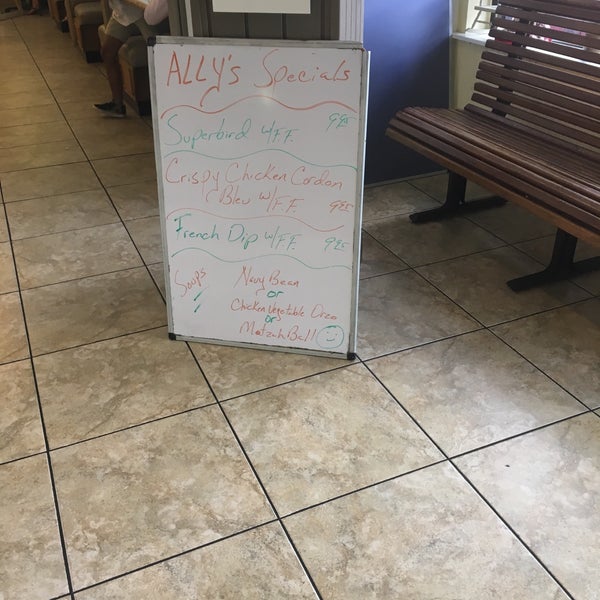 ALLY's Specials
Superbird w/F.F. 9.95
Crispy Chicken Cordon
Bleu w/F.F. 9.95
French Dip w/F.F. 9.95
Soups
Navy Bean
or
Chicken Vegetable Orzo
or
Matzah Ball